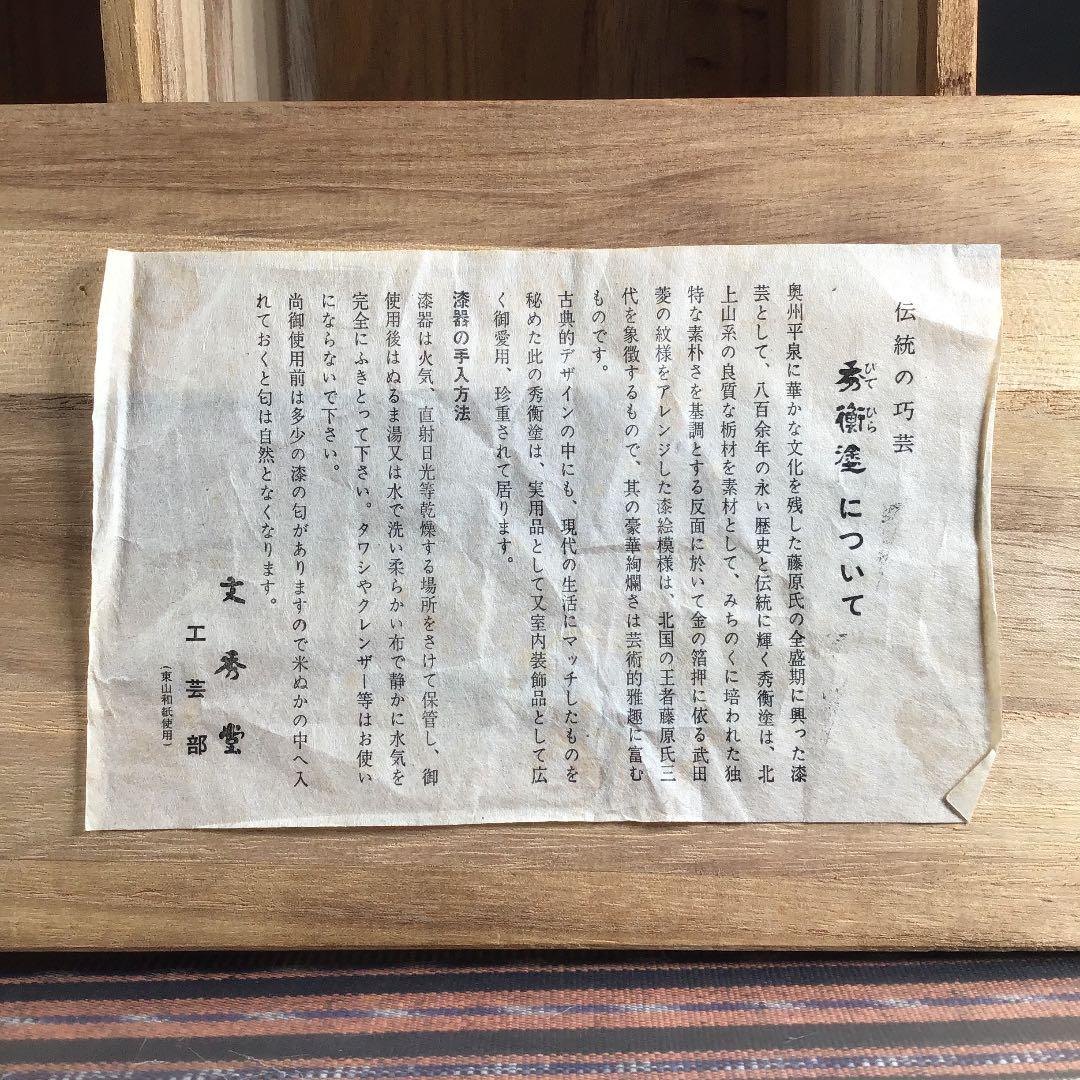 伝統の巧芸
秀衡塗について
ひで ひら
奥州平泉に華かな文化を残した藤原氏の全盛期に興った漆
芸として、八百余年の永い歴史と伝統に輝く秀衡塗は、北
上山系の良質な栃材を素材として、みちのくに培われた独
特な素朴さを基調とする反面に於いて金の箔押に依る武田
菱の紋様をアレンジした漆絵模様は、北国の王者藤原氏三
代を象徴するもので、其の豪華絢爛さは芸術的雅趣に富む
ものです。
古典的デザインの中にも、現代の生活にマッチしたものを
秘めた此の秀衡塗は、実用品として又室内装飾品として広
く御愛用、珍重されて居ります。
漆器の手入方法
漆器は火気、直射日光等乾燥する場所をさけて保管し、御
使用後はぬるま湯又は水で洗い柔らかい布で静かに水気を
完全にふきとって下さい。タワシやクレンザー等はお使い
にならないで下さい。
尚御使用前は多少の漆の匂がありますので米ぬかの中へ入
れておくと匂は自然となくなります。
文秀堂
工芸部
(東山和紙使用)